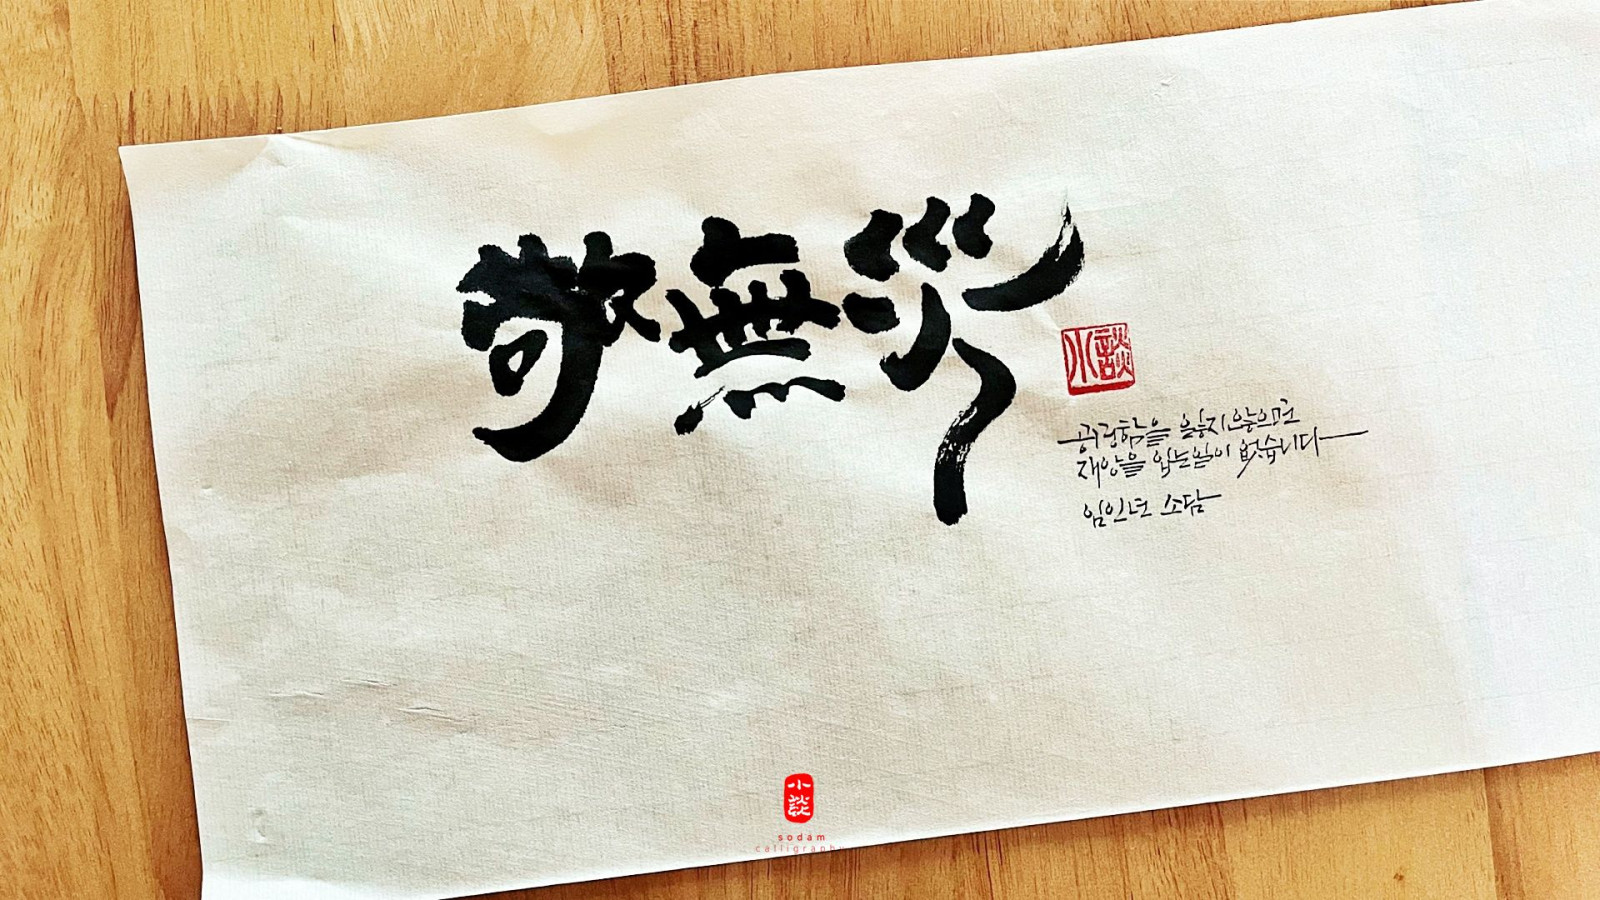 敬無災
小談
공경함을 잃지않으면
재앙을 입는일이 없습니다
임인년 소담
小
談
sodam
calligraphy